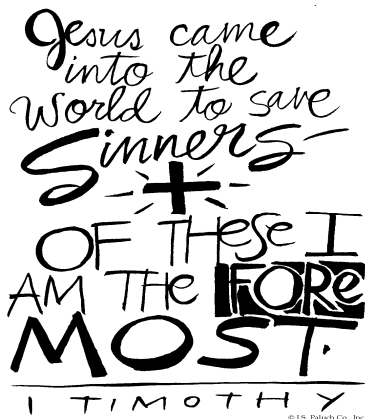 Jesus came
into the
World to save
Sinners
OF THese I
AM THe FORe
MOST.
I TIMOTHY
© J.S. Paluch Co., Inc.